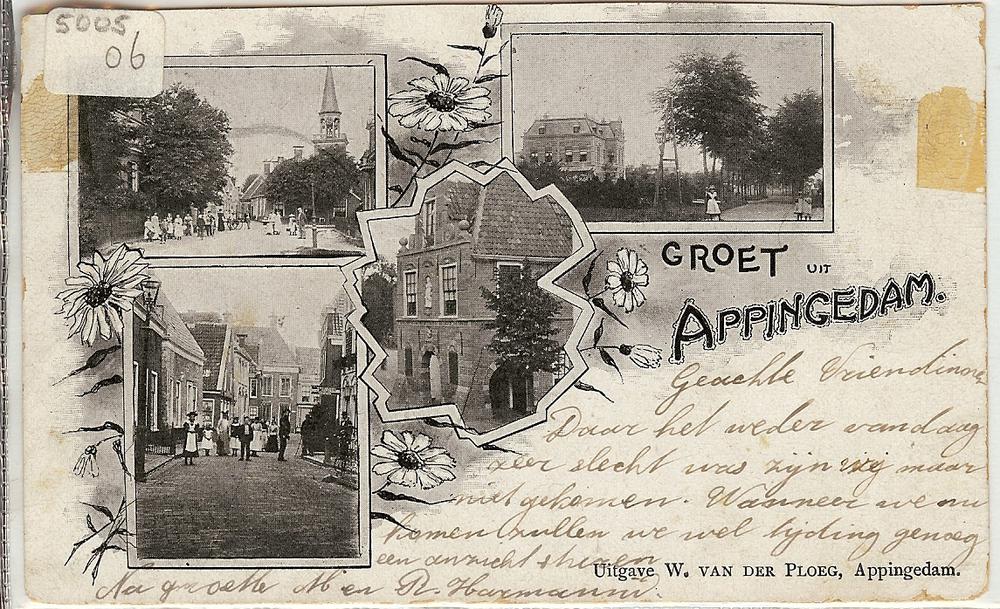 5005
06
GROET UIT
APPINGEDAM.
Geachte Vriendinnen
Daar het weder vandaag
zeer slecht was zijn wij maar
niet gekomen. Wanneer we nu
komen zullen we wel tijding genoeg
een anzicht
Uitgave W. VAN DER PLOEG, Appingedam.
Na groette M en R. Harmanni.